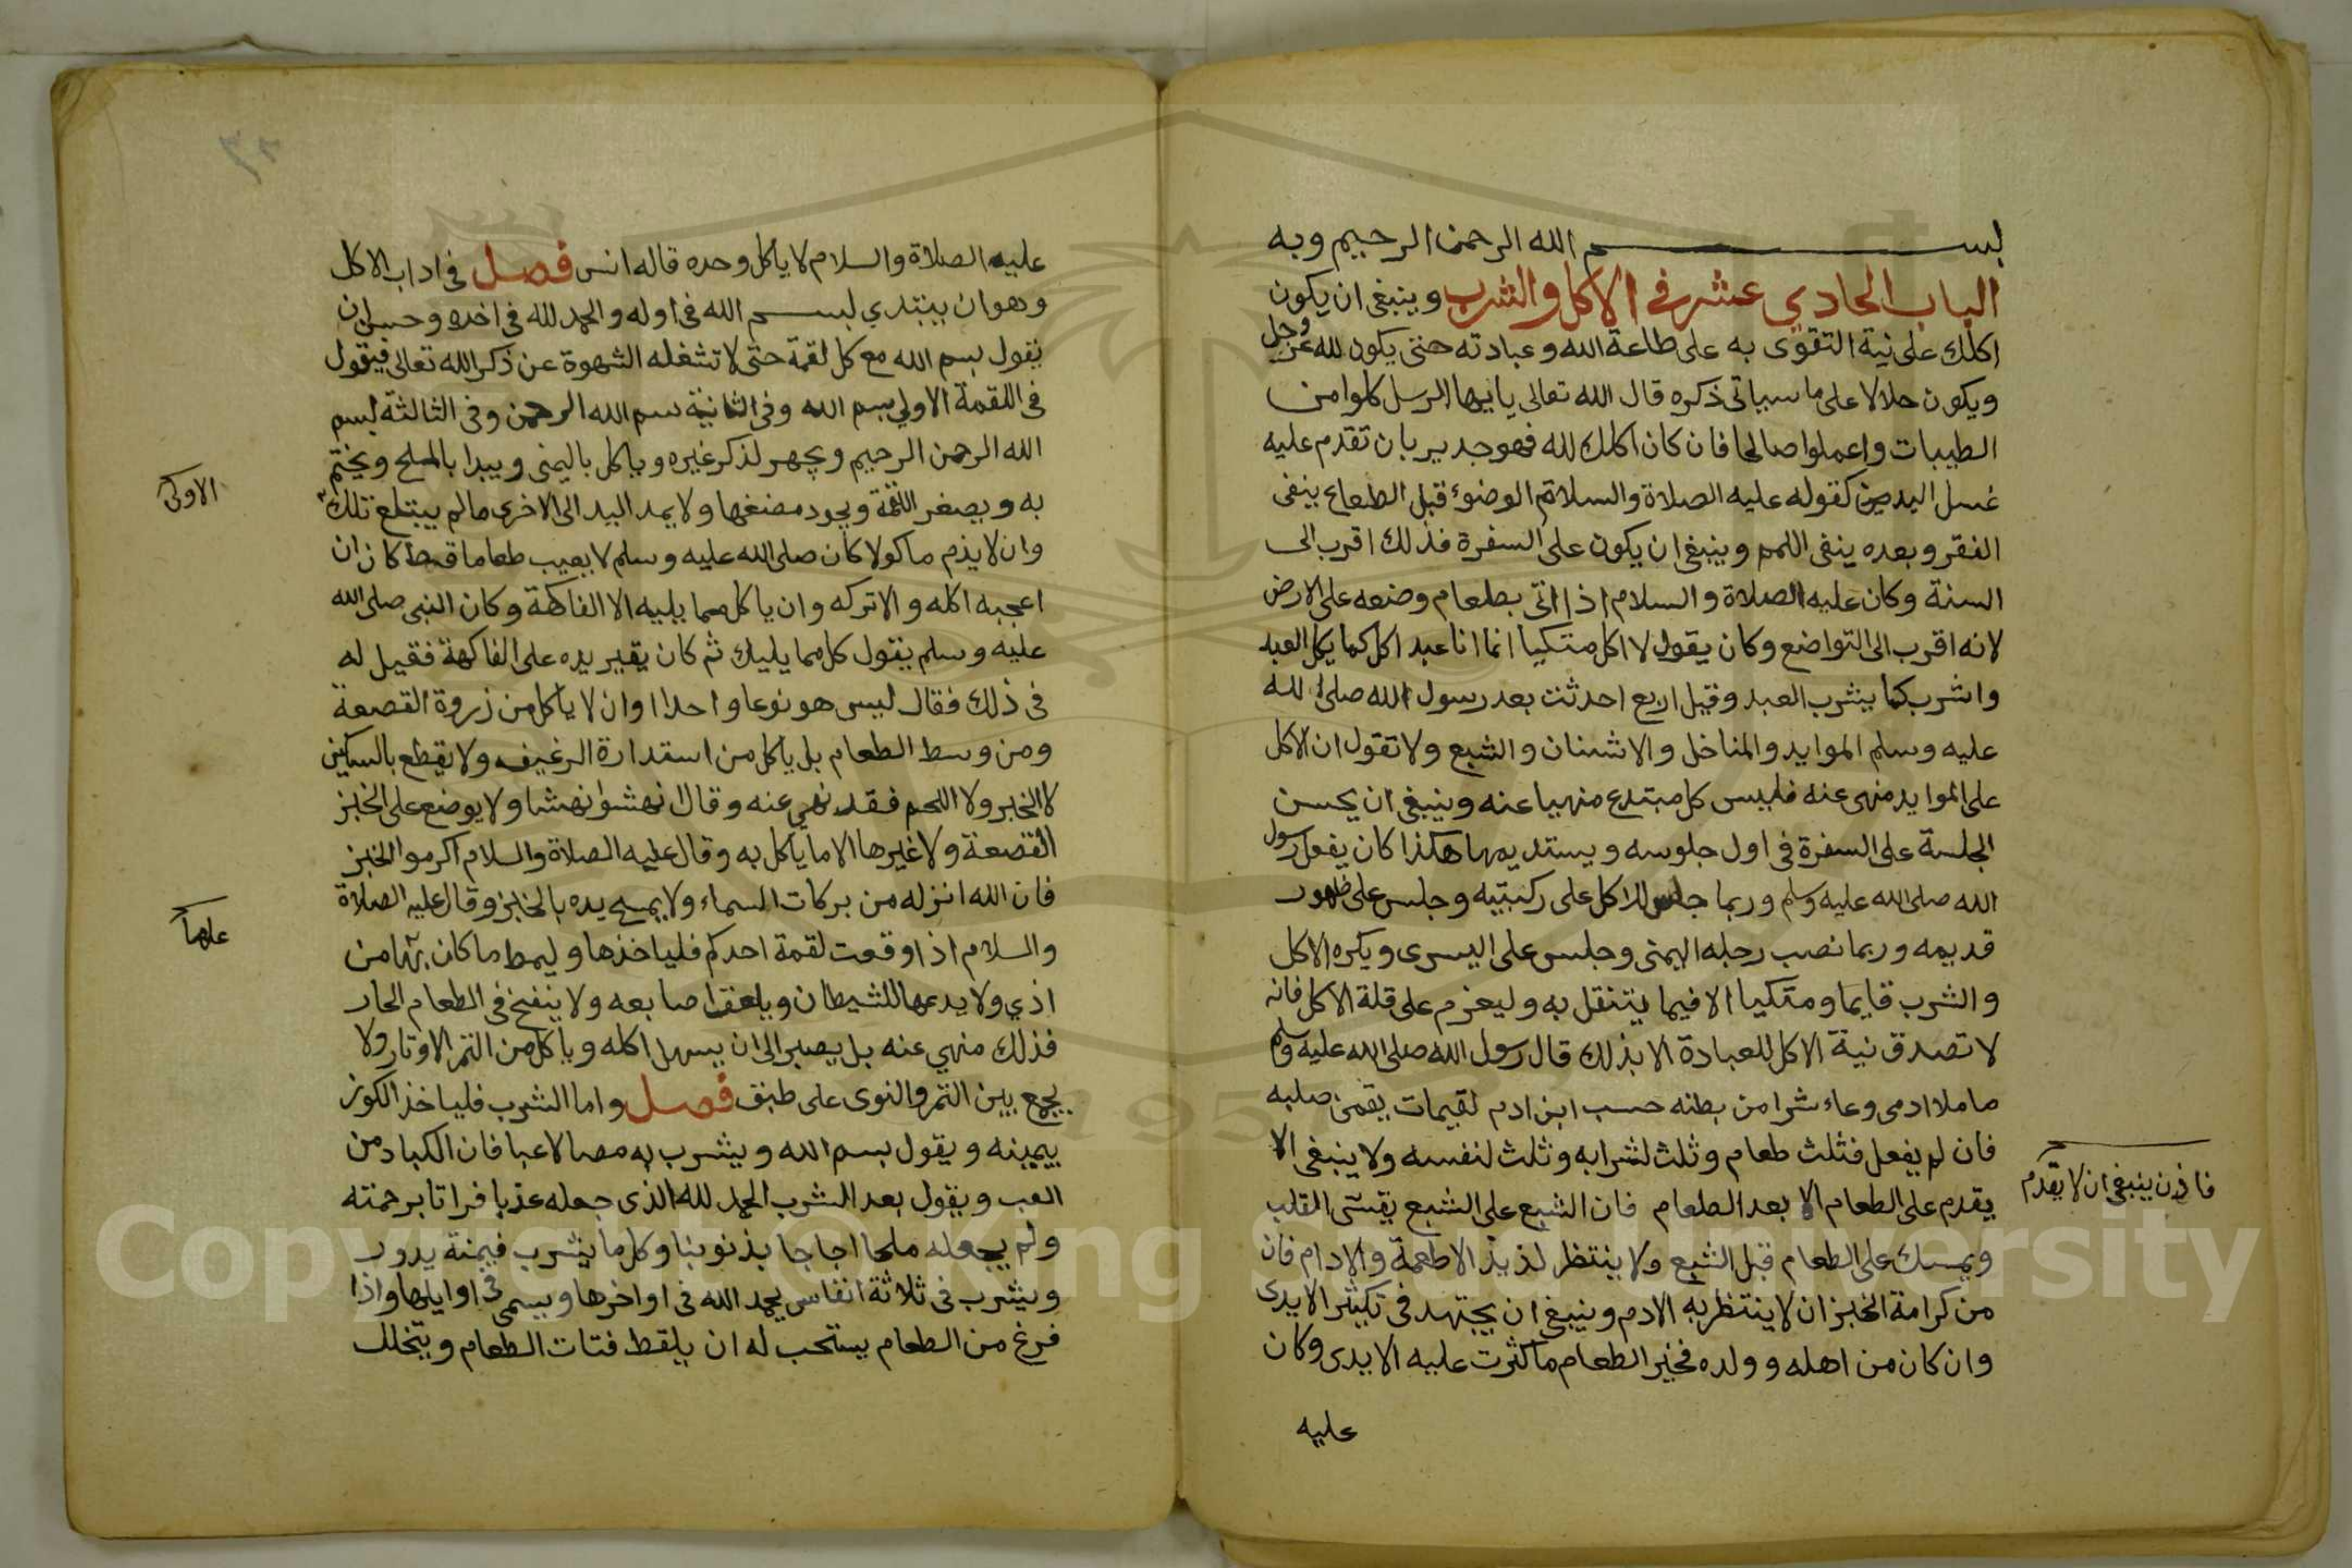 بســـــــم الله الرحمن الرحيم وبه
الباب الحادي عشر في الاكل والشرب وينبغي ان يكون
اكلك على نية التقوى به على طاعة الله وعبادته حتى يكون لله عز وجل
ويكون حلالا على ما سياتي ذكره قال الله تعالى يا ايها الرسل كلوا من
الطيبات واعملوا صالحا فان كان اكلك لله فهو جدير بان تقدم عليه
غسل اليدين كقوله عليه الصلاة والسلام الوضوء قبل الطعام ينفى
الفقر وبعده ينفى اللمم وينبغي ان يكون على السفرة فذلك اقرب الى
السنة وكان عليه الصلاة والسلام اذا اتى بطعام وضعه على الارض
لانه اقرب الى التواضع وكان يقول لا اكل متكيا انما انا عبد اكل كما يكل العبد
واشرب كما يشرب العبد وقيل اربع احدثت بعد رسول الله صلى الله
عليه وسلم الموايد والمناخل والاشنان والشبع ولا تقول ان الاكل
على الموايد منهى عنه فليس كل مبتدع منهيا عنه وينبغي ان يحسن
الجلسة على السفرة في اول جلوسه ويستديمها هكذا كان يفعل رسول
الله صلى الله عليه وسلم وربما جلس للاكل على ركبتيه وجلس على ظهور
قديمه وربما نصب رجله اليمنى وجلس على اليسرى ويكره الاكل
والشرب قايما ومتكيا الا فيما يتنقل به وليعزم على قلة الاكل فانه
لا تصدق نية الاكل للعبادة الا بذلك قال رسول الله صلى الله عليه وسلم
ما ملا ادمى وعاء شرا من بطنه حسب ابن ادم لقيمات يقمن صلبه
فان لم يفعل فثلث طعام وثلث لشرابه وثلث لنفسه ولا ينبغي الا
فاذن ينبغي ان لا يقدم
يقدم على الطعام الا بعد الطعام فان الشبع على الشبع يقسى القلب
ويمسك على الطعام قبل الشبع ولا ينتظر لذيذ الاطعمة والادام فان
من كرامة الخبز ان لا ينتظر به الادم وينبغي ان يجتهد في تكثير الايدى
وان كان من اهله وولده فخير الطعام ما كثرت عليه الايدى وكان
عليه
عليه الصلاة والسلام لا ياكل وحده قاله انس فصل في اداب الاكل
وهو ان يبتدي بسم الله في اوله والحمد لله في اخره وحسن ان
يقول بسم الله مع كل لقمة حتى لا تشغله الشهوة عن ذكر الله تعالى فيقول
في اللقمة الاولى بسم الله وفي الثانية بسم الله الرحمن وفي الثالثة بسم
الله الرحمن الرحيم ويجهر لذكر غيره وياكل باليمنى ويبدا بالملح ويختم
به ويصغر اللقمة ويجود مضغها ولا يمد اليد الى الاخرى ما لم يبتلع تلك
الاولى
وان لا يذم ماكولا كان صلى الله عليه وسلم لا يعيب طعاما قط كان ان
اعجبه اكله والا تركه وان ياكل مما يليه الا الفاكهة وكان النبي صلى الله
عليه وسلم يقول كل مما يليك ثم كان يدير يده على الفاكهة فقيل له
في ذلك فقال ليس هو نوعا واحدا وان لا ياكل من زروة القصعة
ومن وسط الطعام بل ياكل من استدارة الرغيف ولا يقطع بالسكين
لا الخبز ولا اللحم فقد نهي عنه وقال انهشوا نهشا ولا يوضع على الخبز
القصعة ولا غيرها الا ما ياكل به وقال عليه الصلاة والسلام اكرموا الخبز
فان الله انزله من بركات السماء ولا يمسح يده بالخبز وقال عليه الصلاة
والسلام اذا وقعت لقمة احدكم فلياخذها وليمط ما كان بها من
اذي ولا يدعها للشيطان ويلعق اصابعه ولا ينفخ في الطعام الحار
فذلك منهي عنه بل يصبر الى ان يسهل اكله وياكل من التمر الاوتار ولا
يجمع بين التمر والنوى على طبق فصل واما الشرب فلياخذ الكوز
بيمينه ويقول بسم الله ويشرب به مصا لا عبا فان الكباد من
العب ويقول بعد الشرب الحمد لله الذى جعله عذبا فراتا برحمته
ولم يجعله ملحا اجاجا بذنوبنا وكل ما يشرب فيمنة يدور
ويشرب في ثلاثة انفاس يحمد الله في اواخرها ويسمى في اوايلها واذا
فرغ من الطعام يستحب له ان يلقط فتات الطعام ويتخلل